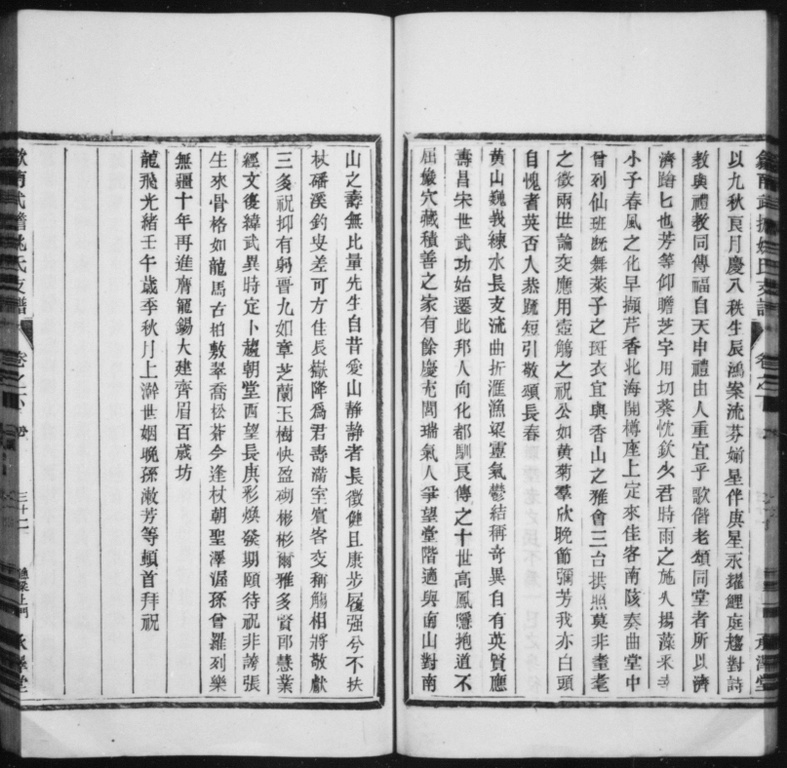 以九秋良月慶八秩生辰鴻案流芬媊星伴庚星永耀鯉庭趨對詩
教與禮教同傳福自天申禮由人重宜乎歌偕老頌同堂者所以濟
濟蹌匕也芳等仰瞻芝字用切葵忱欽 君時雨之施久揚藻采
小子春風之化早擷芹香北海開樽座上定來佳客南陔奏曲堂中
曾列仙班旣舞萊子之斑衣宜與香山之雅會三台拱照莫非耋耄
之徵兩世論交應用壺觴之祝公如黃菊羣欣晚節彌芳我亦白頭
自愧耆英否入恭疏短引敬頌長春
黃山巍峩練水長支流曲折滙漁梁靈氣鬱結稱奇異自有英賢應
壽昌宋世武功始遷此邦人向化都馴良傳之十世高鳳翥抱道不
屈巖穴藏積善之家有餘慶充閭瑞氣人爭望堂階適與南山對南
山之壽無比量先生自昔愛山靜靜者長徵健且康步履强兮不扶
杖磻溪釣叟差可方佳辰嶽降爲君壽滿室賓客交稱觴相將敬獻
三多祝抑有躬晉九如章芝蘭玉樹快盈砌彬彬爾雅多賢郎慧業
經文復緯武異時定卜趨朝堂西望長庚彩煥發期頤待祝非譸張
生來骨格如龍馬古柏敷翠喬松蒼今逢杖朝聖澤渥孫曾羅列樂
無疆十年再進膺寵錫大建齊眉百歲坊
龍飛光緒壬午歲季秋月上澣世姻晩孫澂芳等頓首拜祝
氏支譜
卷之
三十二
承澤堂